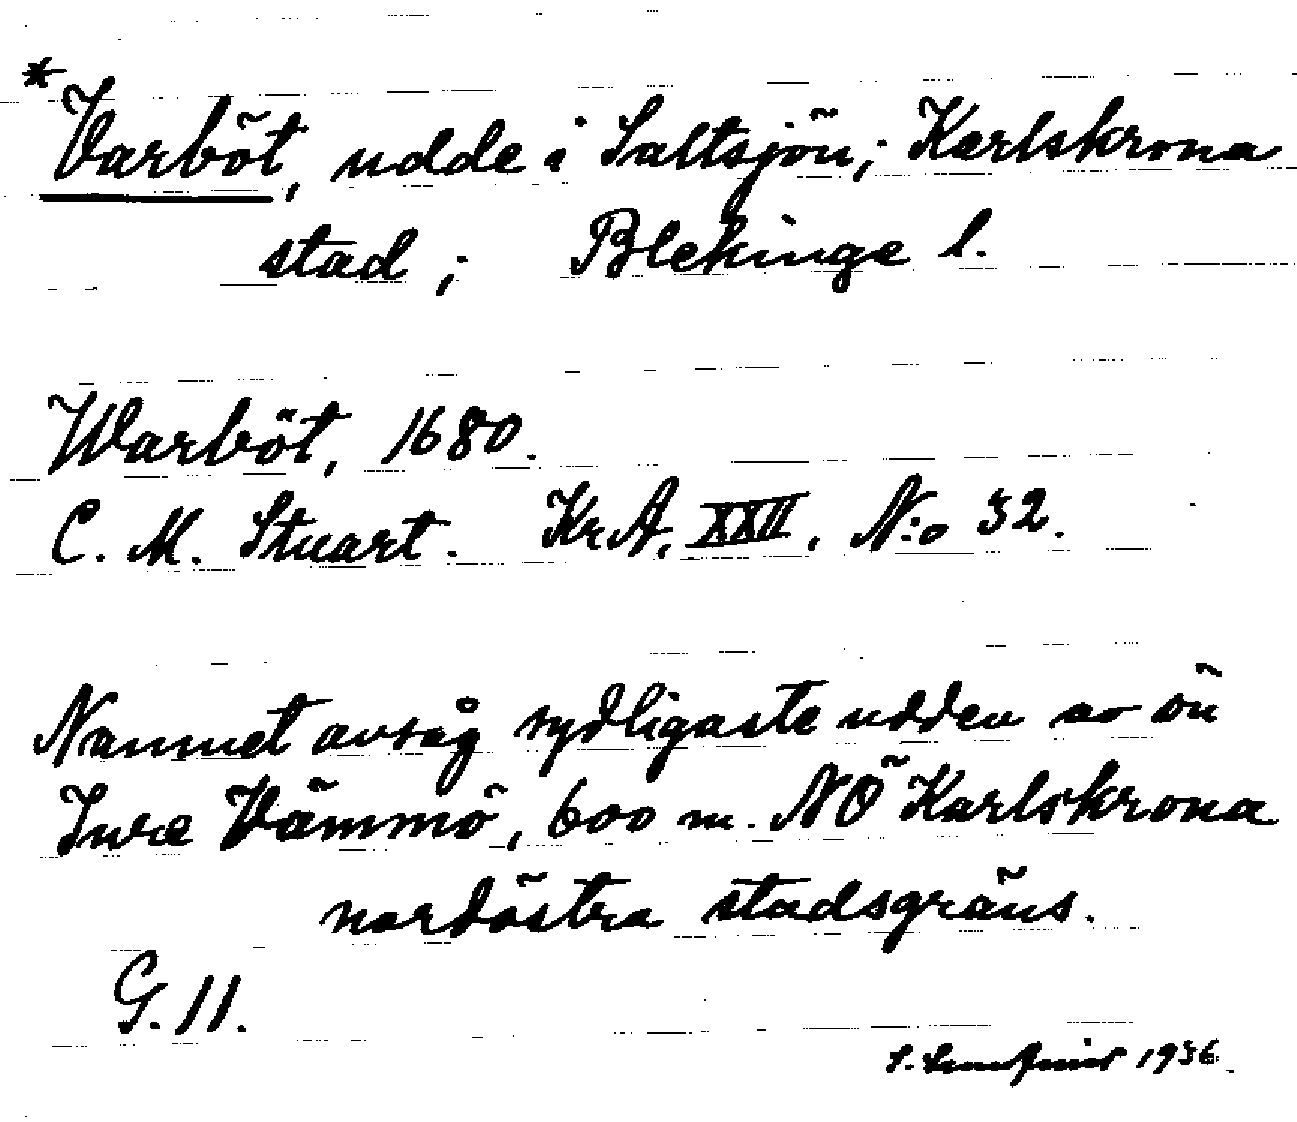 *Varböt, udde i Saltsjön; Karlskrona
stad; Blekinge l.
Warböt, 1680.
C. M. Stuart. KrA, XXII, N:o 32.
Namnet avsåg sydligaste udden av ön
Inre Vämmö, 600 m. NÖ Karlskrona
nordöstra stadsgräns.
G. 11.
S. 1936.